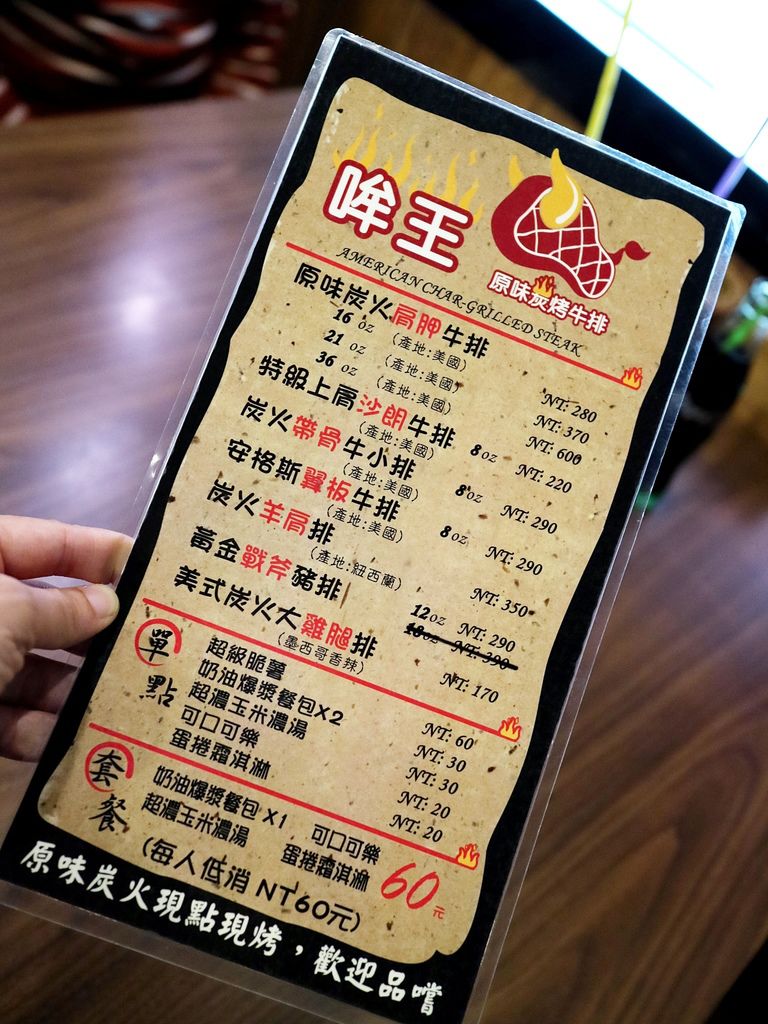 哞王
AMERICAN CHAR-GRILLED STEAK
原味炭烤牛排
原味炭火肩胛牛排
16 oz (產地:美國) NT: 280
21 oz (產地:美國) NT: 370
36 oz (產地:美國) NT: 600
特級上肩沙朗牛排 8 oz NT: 220
(產地:美國)
炭火帶骨牛小排 8 oz NT: 290
(產地:美國)
安格斯翼板牛排 8 oz NT: 290
(產地:美國)
炭火羊肩排 NT: 350
(產地:紐西蘭)
黃金戰斧豬排 12 oz NT: 290
18 oz NT: 390
美式炭火大雞腿排 NT: 170
(墨西哥香辣)
單點
超級脆薯 NT: 60
奶油爆漿餐包X2 NT: 30
超濃玉米濃湯 NT: 30
可口可樂 NT: 20
蛋捲霜淇淋 NT: 20
套餐
奶油爆漿餐包 X1 可口可樂
超濃玉米濃湯 蛋捲霜淇淋 60元
(每人低消 NT60元)
原味炭火現點現烤，歡迎品嚐